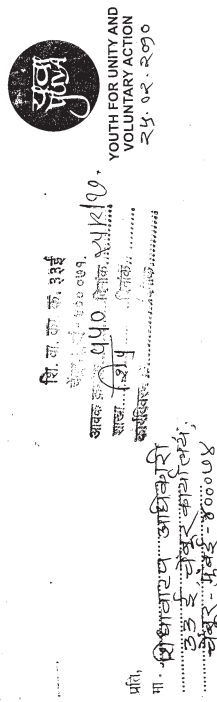 युवा
YUVA
YOUTH FOR UNITY AND
VOLUNTARY ACTION
२५.०२.२०१०
शि. वा. का. क्र. ३३ई
४०० ०७१.
आवक क्र. ५५०. दिनांक २५/२/१०.
शाखा शि.पु दिनांक
कार्यविवरण
प्रति,
मा. शिधावाटप अधिकारी
३३ ई चेंबुर कार्यालय,
चेंबुर - मुंबई - ४०००७४